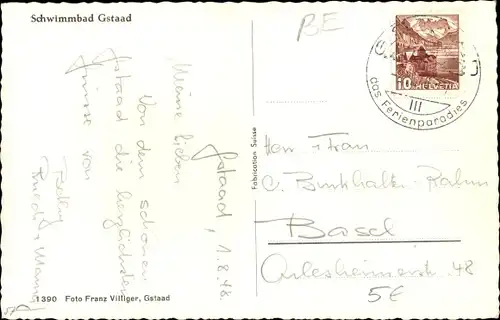 Schwimmbad Gstaad
BE
10 HELVETIA
III
das Ferienparadies
Gstaad, 1.8.48.
Meine Lieben
Von dem schönen
Gstaad die herzlichsten
Grüsse von
Fabrication Suisse
Frau
C. Burkhalter-Rahm
Basel
Arlesheimerstr. 48
5€
1390 Foto Franz Villiger, Gstaad